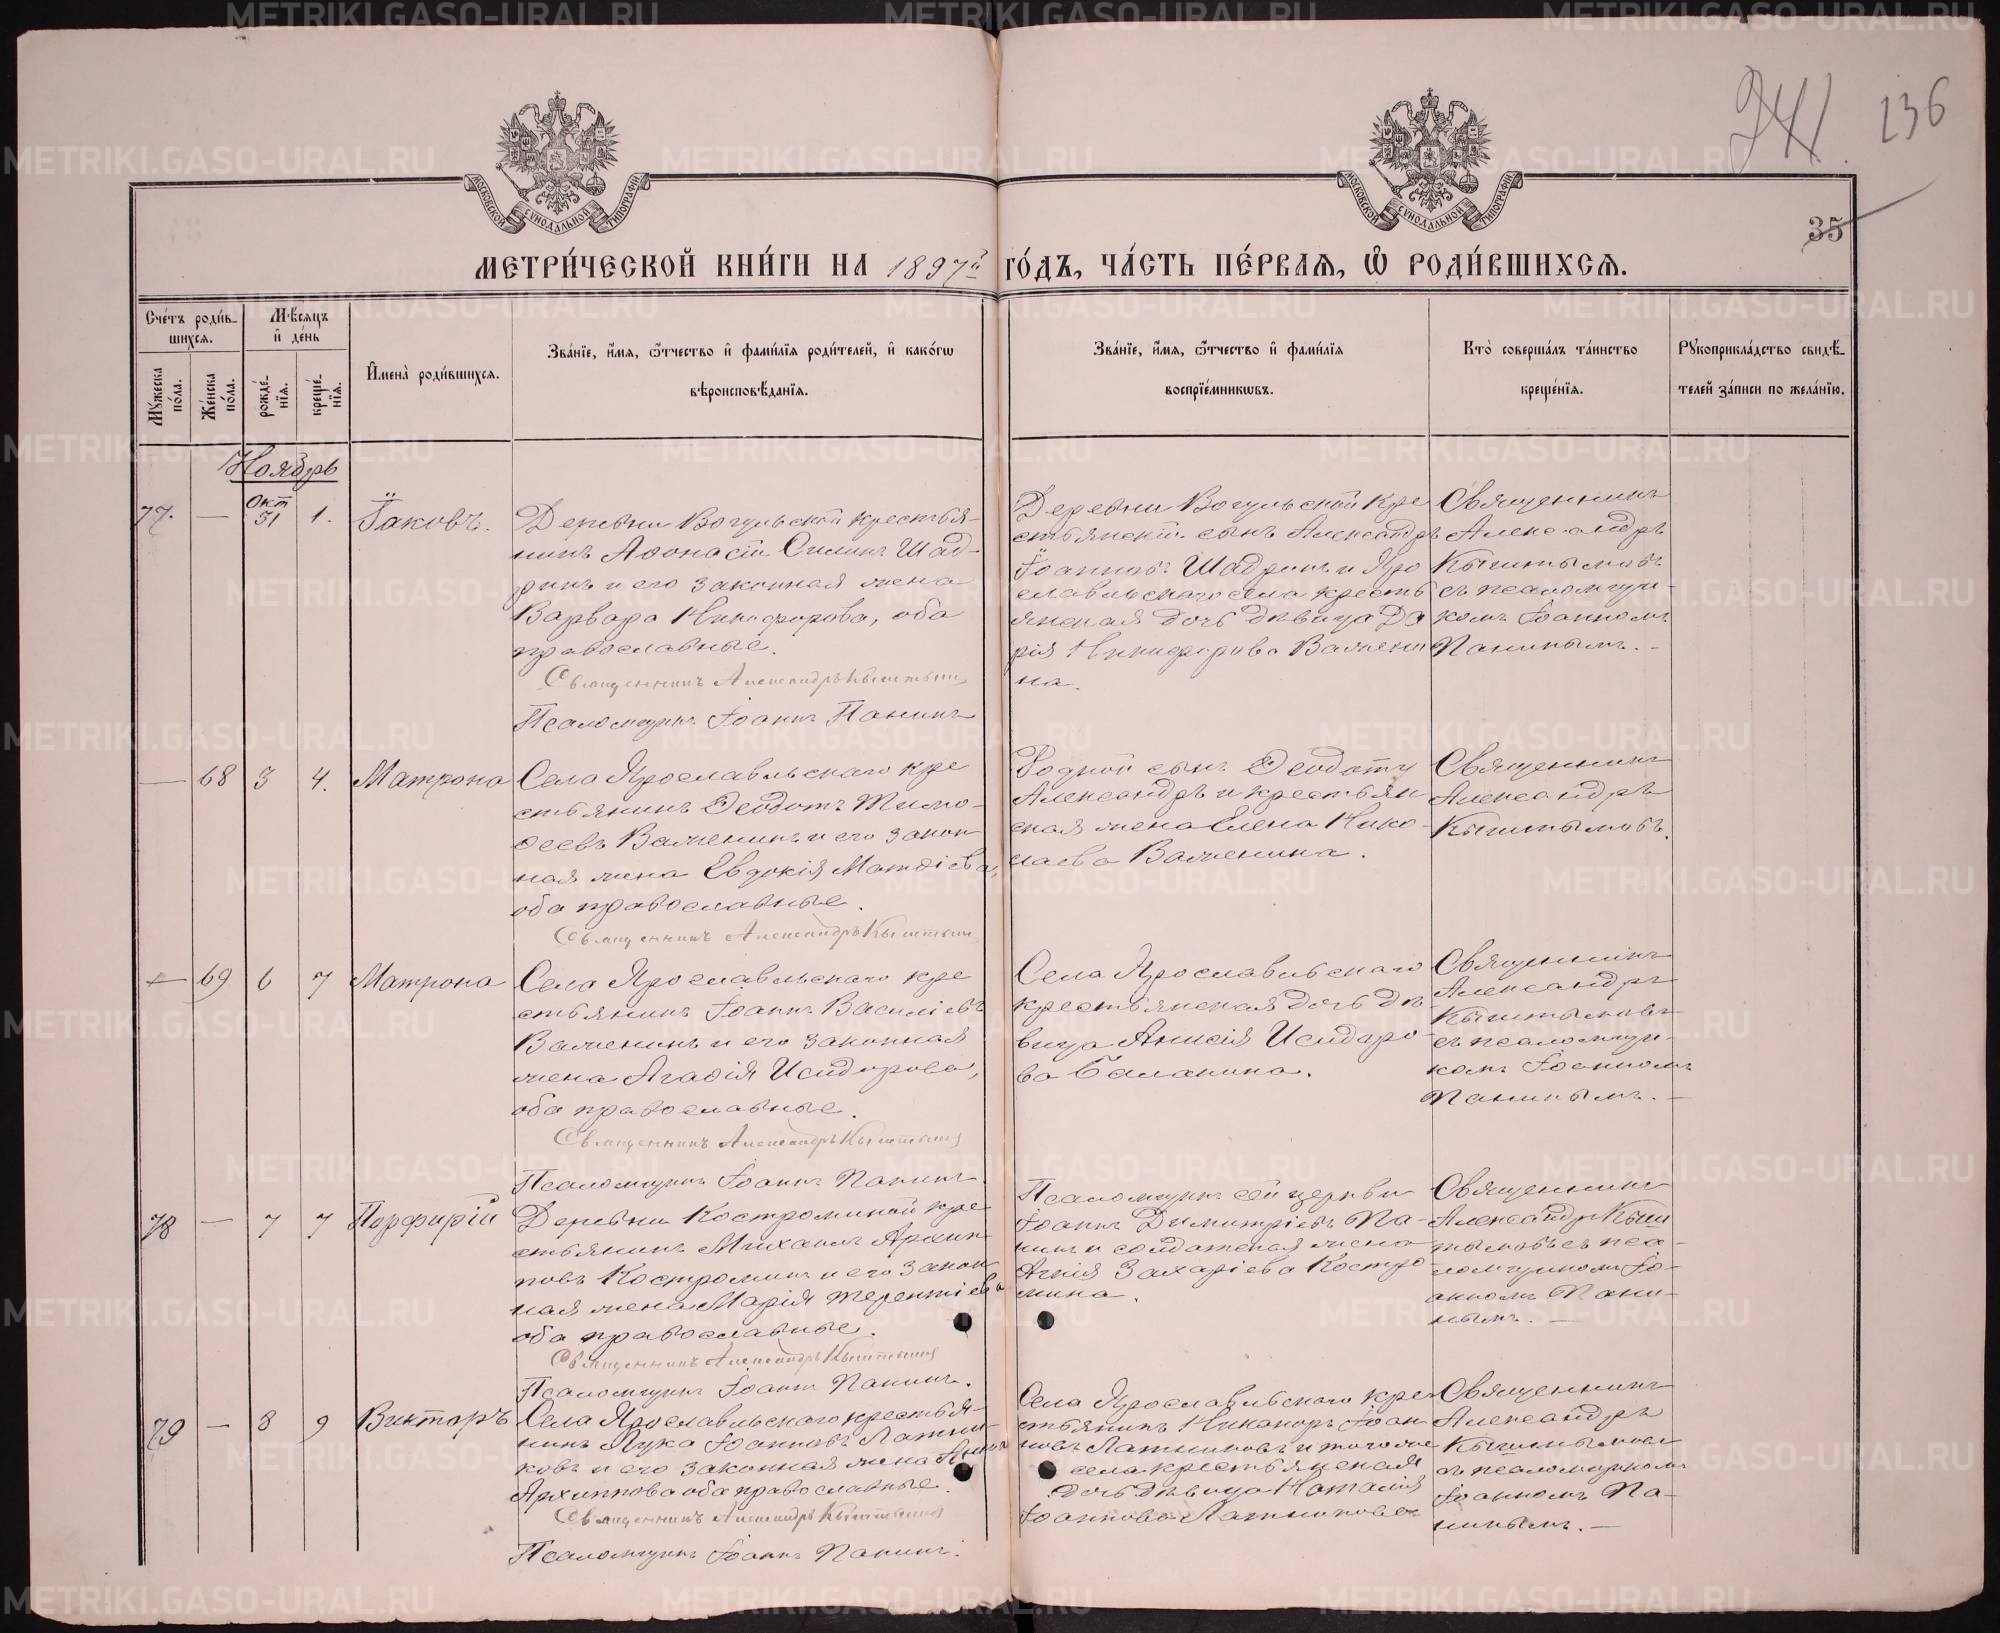 241 136
МОСКОВСКОЙ СѴНОДАЛЬНОЙ ТИПОГРАФІИ
МОСКОВСКОЙ СѴНОДАЛЬНОЙ ТИПОГРАФІИ
35
МЕТРИ́ЧЕСКОЙ КНИ́ГИ НА 1897й ГО́ДЪ, ЧА́СТЬ ПЕ́РВАЯ, Ѡ РОДИ́ВШИХСЯ.
Сче́тъ роди́в-
шихся.
Мꙋ́жеска по́ла.
Же́нска по́ла.
Мѣ́сяцъ
и҆ де́нь
рожде́-
нїя.
креще́-
нїя.
И҆мена̀ роди́вшихся.
Зва́нїе, и҆́мя, ѻ҆́тчество и҆ фами́лїя роди́телей, и҆ како́гѡ
вѣроисповѣ́данїя.
Зва́нїе, и҆́мя, ѻ҆́тчество и҆ фами́лїя
воспрїе́мникѡвъ.
Кто̀ соверша́лъ та́инство
креще́нїя.
Рꙋкоприкла́дство свидѣ́-
телей за́писи по жела́нїю.
Ноябрь
77. — Окт 31 1. Іаковъ.
Деревни Вогульской крестья-
нинъ Аѳонасій Силинъ Шад-
ринъ и его законная жена
Варвара Никифорова, оба
православные.
Священникъ Александръ Кыштым
Псаломщикъ Іоаннъ Панинъ
Деревни Вогульской кре
стьянскій сынъ Александръ
Іоанновъ Шадринъ и Яро
славльскаго села кресть
янская дочь дѣвица Да
рія Никифорова Важени
на.
Священникъ
Александръ
Кыштымовъ
съ псаломщи-
комъ Іоанномъ
Панинымъ. -
— 68 3 4. Матрона
Села Ярославльскаго кре
стьянинъ Ѳеодотъ Тимо-
ѳеевъ Важенинъ и его закон
ная жена Евдокія Матѳіева,
оба православные.
Священникъ Александръ Кыштым
Родной сынъ Ѳеодоту
Александръ и крестьян
ская жена Елена Нико-
лаева Важенина.
Священникъ
Александръ
Кыштымовъ.
— 69 6 7 Матрона
Села Ярославльскаго кре
стьянинъ Іоаннъ Василіевъ
Важенинъ и его законная
жена Агаѳія Исидорова,
оба православные.
Священникъ Александръ Кыштымо
Псаломщикъ Іоаннъ Панинъ.
Села Ярославльскаго
крестьянская дочь дѣ-
вица Анисія Исидоро-
ва Балакина.
Священникъ
Александръ
Кыштымовъ
съ псаломщи-
комъ Іоанномъ
Панинымъ. —
78 — 7 7 Порфирій
Деревни Костроминой кре
стьянинъ Михаилъ Архип
повъ Костроминъ и его закон
ная жена Марія Терентіева
оба православные.
Священникъ Александръ Кыштымо
Псаломщикъ Іоаннъ Панинъ.
Псаломщикъ сей церкви
Іоаннъ Димитріевъ Па-
нинъ и солдатская жена
Агнія Захаріева Костро-
мина.
Священникъ
Александръ Кыш
тымовъ съ пса-
ломщикомъ Іо-
анномъ Пани-
нымъ. —
79 — 8 9 Викторъ
Села Ярославльскаго крестья-
нинъ Лука Іоанновъ Латни-
ковъ и его законная жена Анна
Архиппова оба православные.
Священникъ Александръ Кыштымо
Псаломщикъ Іоаннъ Панинъ.
Села Ярославльскаго кре-
стьянинъ Никаноръ Іоан
новъ Латниковъ и того же
села крестьянская
дочь дѣвица Наталія
Іоаннова Латникова
Священникъ
Александръ
Кыштымовъ
съ псаломщикомъ
Іоанномъ Па-
нинымъ. —
METRIKI.GASO-URAL.RU